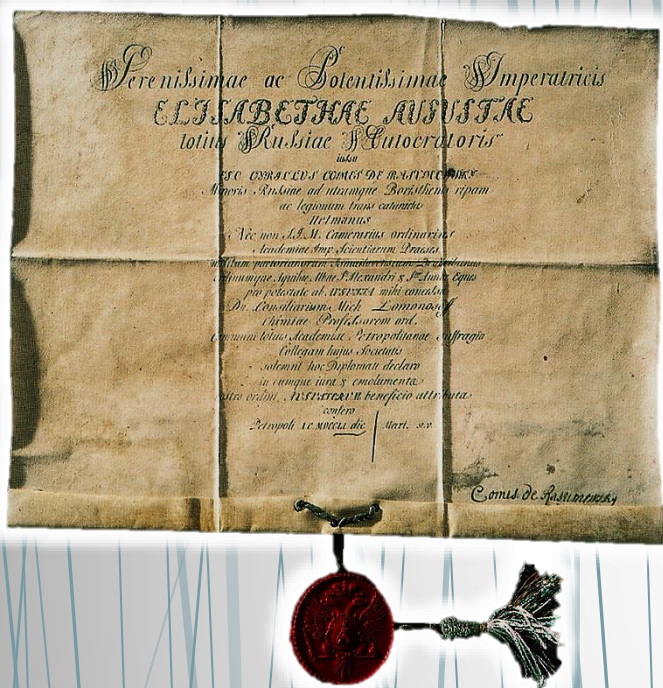 Serenissimae ac Potentissimae Imperatricis
ELISABETHAE AUGUSTAE
totius Russiae Autocratoris
iussu
EGO CYRILLUS COMES DE RASUMOWSKY
Minoris Russiae ad utramque Boristhenis ripam
ac legionum trans
Hetmanus
Nec non S.I.M. Camerarius ordinarius
Academiae Imp. Scientiarum Praeses
Aquilae Albae S. Alexandri & Annae Eques
pro potestate ab AUGUSTA mihi concessa
Dn. Consiliarium Mich Lomonosoff
Chimiae Professorem ord.
totius Academiae Petropolitanae suffragio
Collegam hujus Societatis
solemni hoc Diplomate declaro
in eumque iura & emolumenta
nostro ordini, beneficio attributa
confero
Petropoli MDCCLI die Mart.
Comes de Rasumowsky